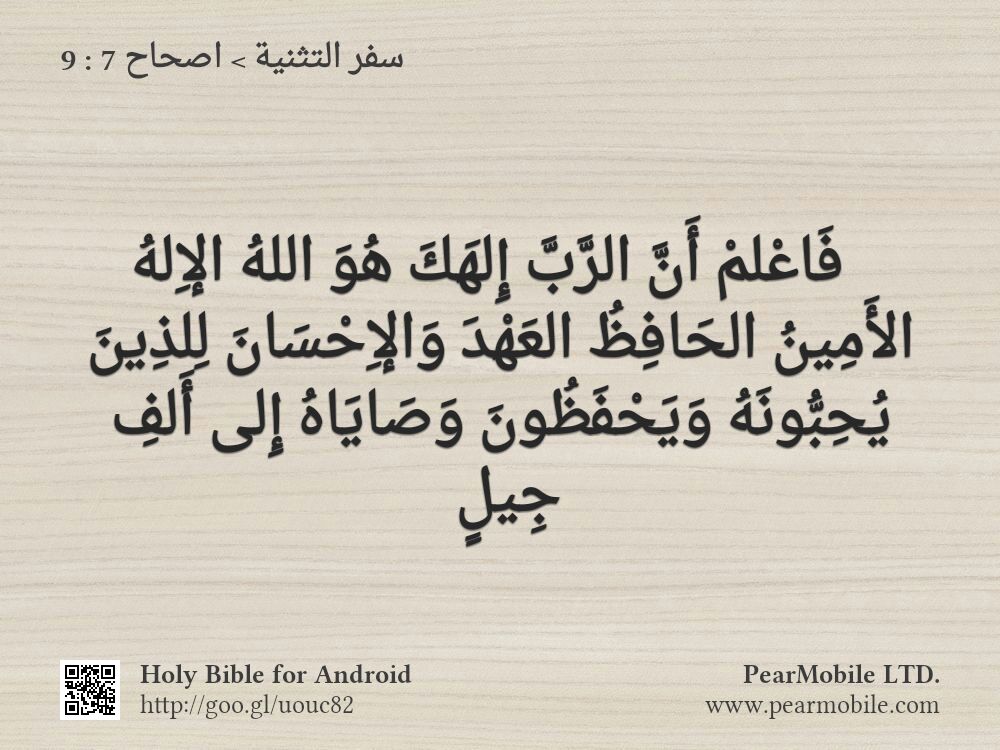 سفر التثنية > اصحاح 7 : 9
فَاعْلمْ أَنَّ الرَّبَّ إِلهَكَ هُوَ اللهُ الإِلهُ
الأَمِينُ الحَافِظُ العَهْدَ وَالإِحْسَانَ لِلذِينَ
يُحِبُّونَهُ وَيَحْفَظُونَ وَصَايَاهُ إِلى أَلفِ
جِيلٍ
Holy Bible for Android
http://goo.gl/uouc82
PearMobile LTD.
www.pearmobile.com